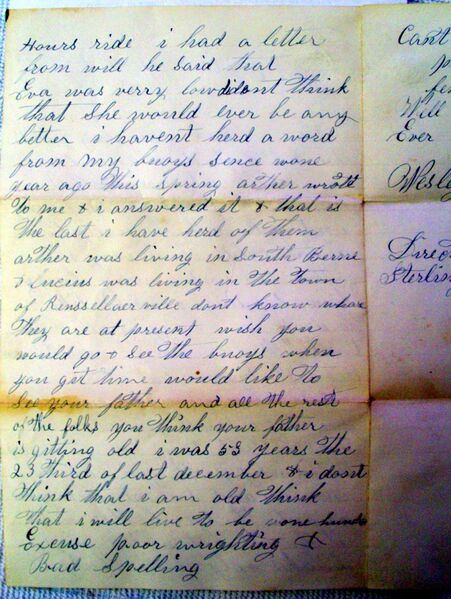 Hours ride i had a letter
from will he said that
Eva was verry low didont think
that she would ever be any
better i havent herd a word
from my buoys sence wone
year ago this spring arther wrott
to me & i answered it & that is
the last i have herd of them
arther was living in South Berne
& Lucius was living in the town
of Rensselaerville dont know whare
they are at present wish you
would go & see the buoys when
you git time would like to
see your father and all the rest
of the folks you think your father
is gitting old i was 53 years the
23 third of last december & i dont
think that i am old think
that i will live to be vone
Excuse poor wrighting &
Bad Spelling
Cant
Will
Ever
Wesley
Direct
Sterling